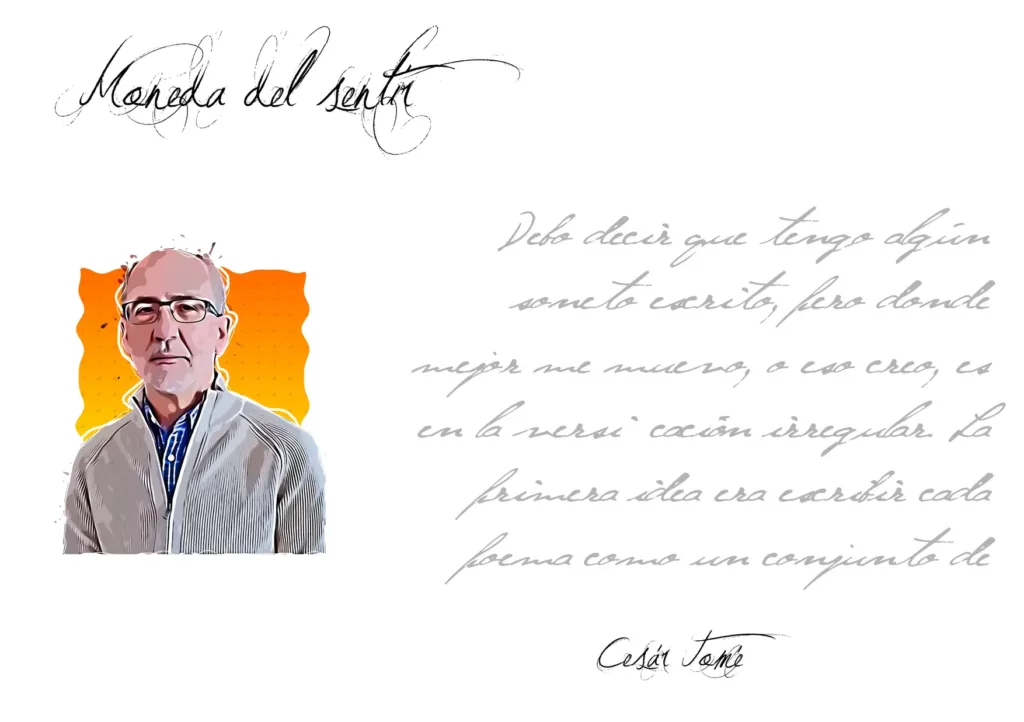 Moneda del sentir
Debo decir que tengo algún
soneto escrito, pero donde
mejor me muevo, o eso creo, es
en la versi cación irregular. La
primera idea era escribir cada
poema como un conjunto de
Cesár Tomé